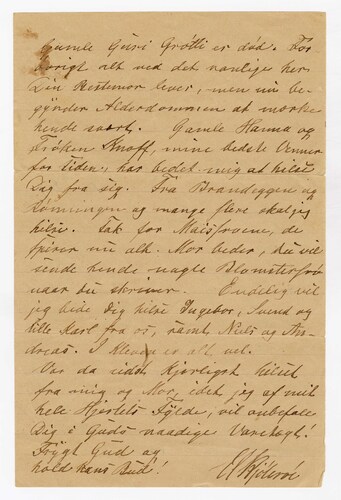 Gamle Guri Grötti er död. For
övrigt alt ved det vanlige her.
Din Bestemor lever, men nu be-
gynder Alderdommen at mærke
hende svært. Gamle Hanna og
Fröken Knoff, mine bedste Venner
for Tiden, har bedet mig at hilse
Dig fra sig. Fra Brandeggen og
Rönningen og mange flere skal jeg
hilse. Tak for Maisfröene, de
spirer nu alt. Mor beder, du vil
sende hende nogle Blomsterfrö
naar du skriver. Endelig vil
jeg bede Dig hilse Ingebor, Svend og
lille Karl fra os, samt Niels og An-
dreas. I Kleven er alt vel.
Vær da sidst kjærligst hilset
fra mig og Mor, idet jeg af mit
hele Hjertes Fylde, vil anbefale
Dig i Guds naadige Varetægt!
Frygt Gud og
hold hans Bud!